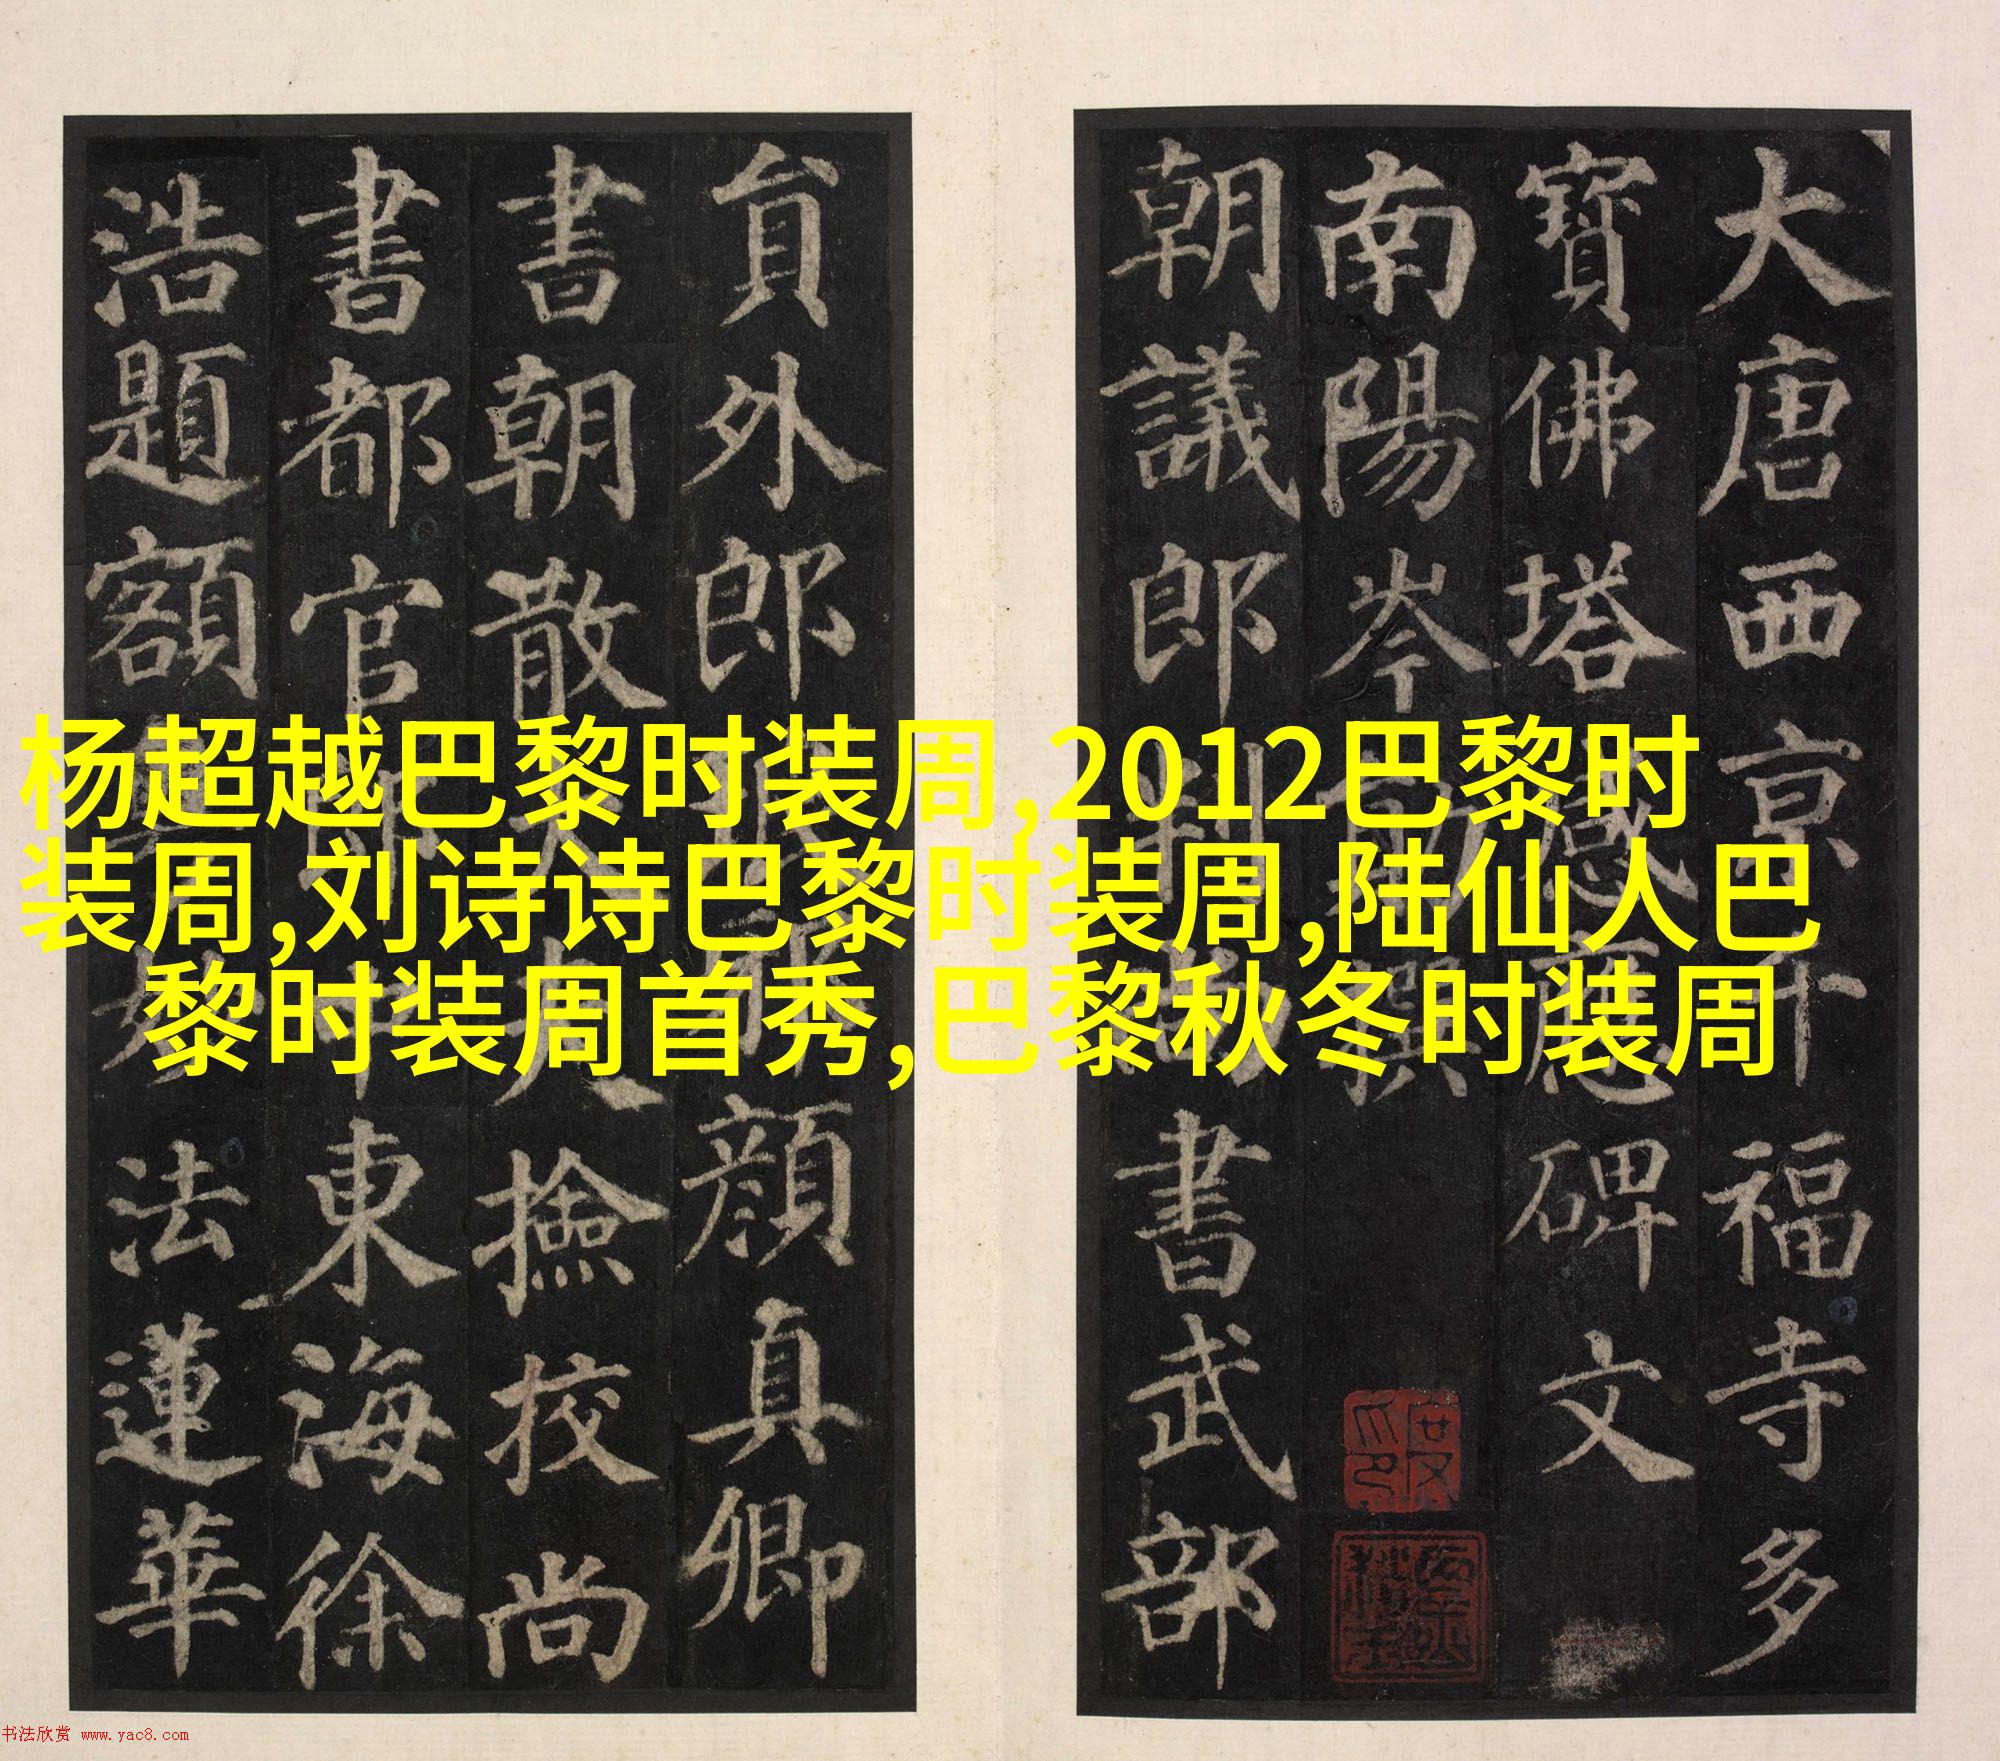 大唐西京千福寺多
寶佛塔感應碑文
南陽岑勛撰
朝議郎判尚書武部
貟外郎琅顏真卿
書朝散大夫撿校尚
書都官郎中東海徐
浩題額
法蓮華
杨超越巴黎时装周,2012巴黎时
装周,刘诗诗巴黎时装周,陆仙人巴
黎时装周首秀,巴黎秋冬时装周
书法欣赏 www.yac8.com